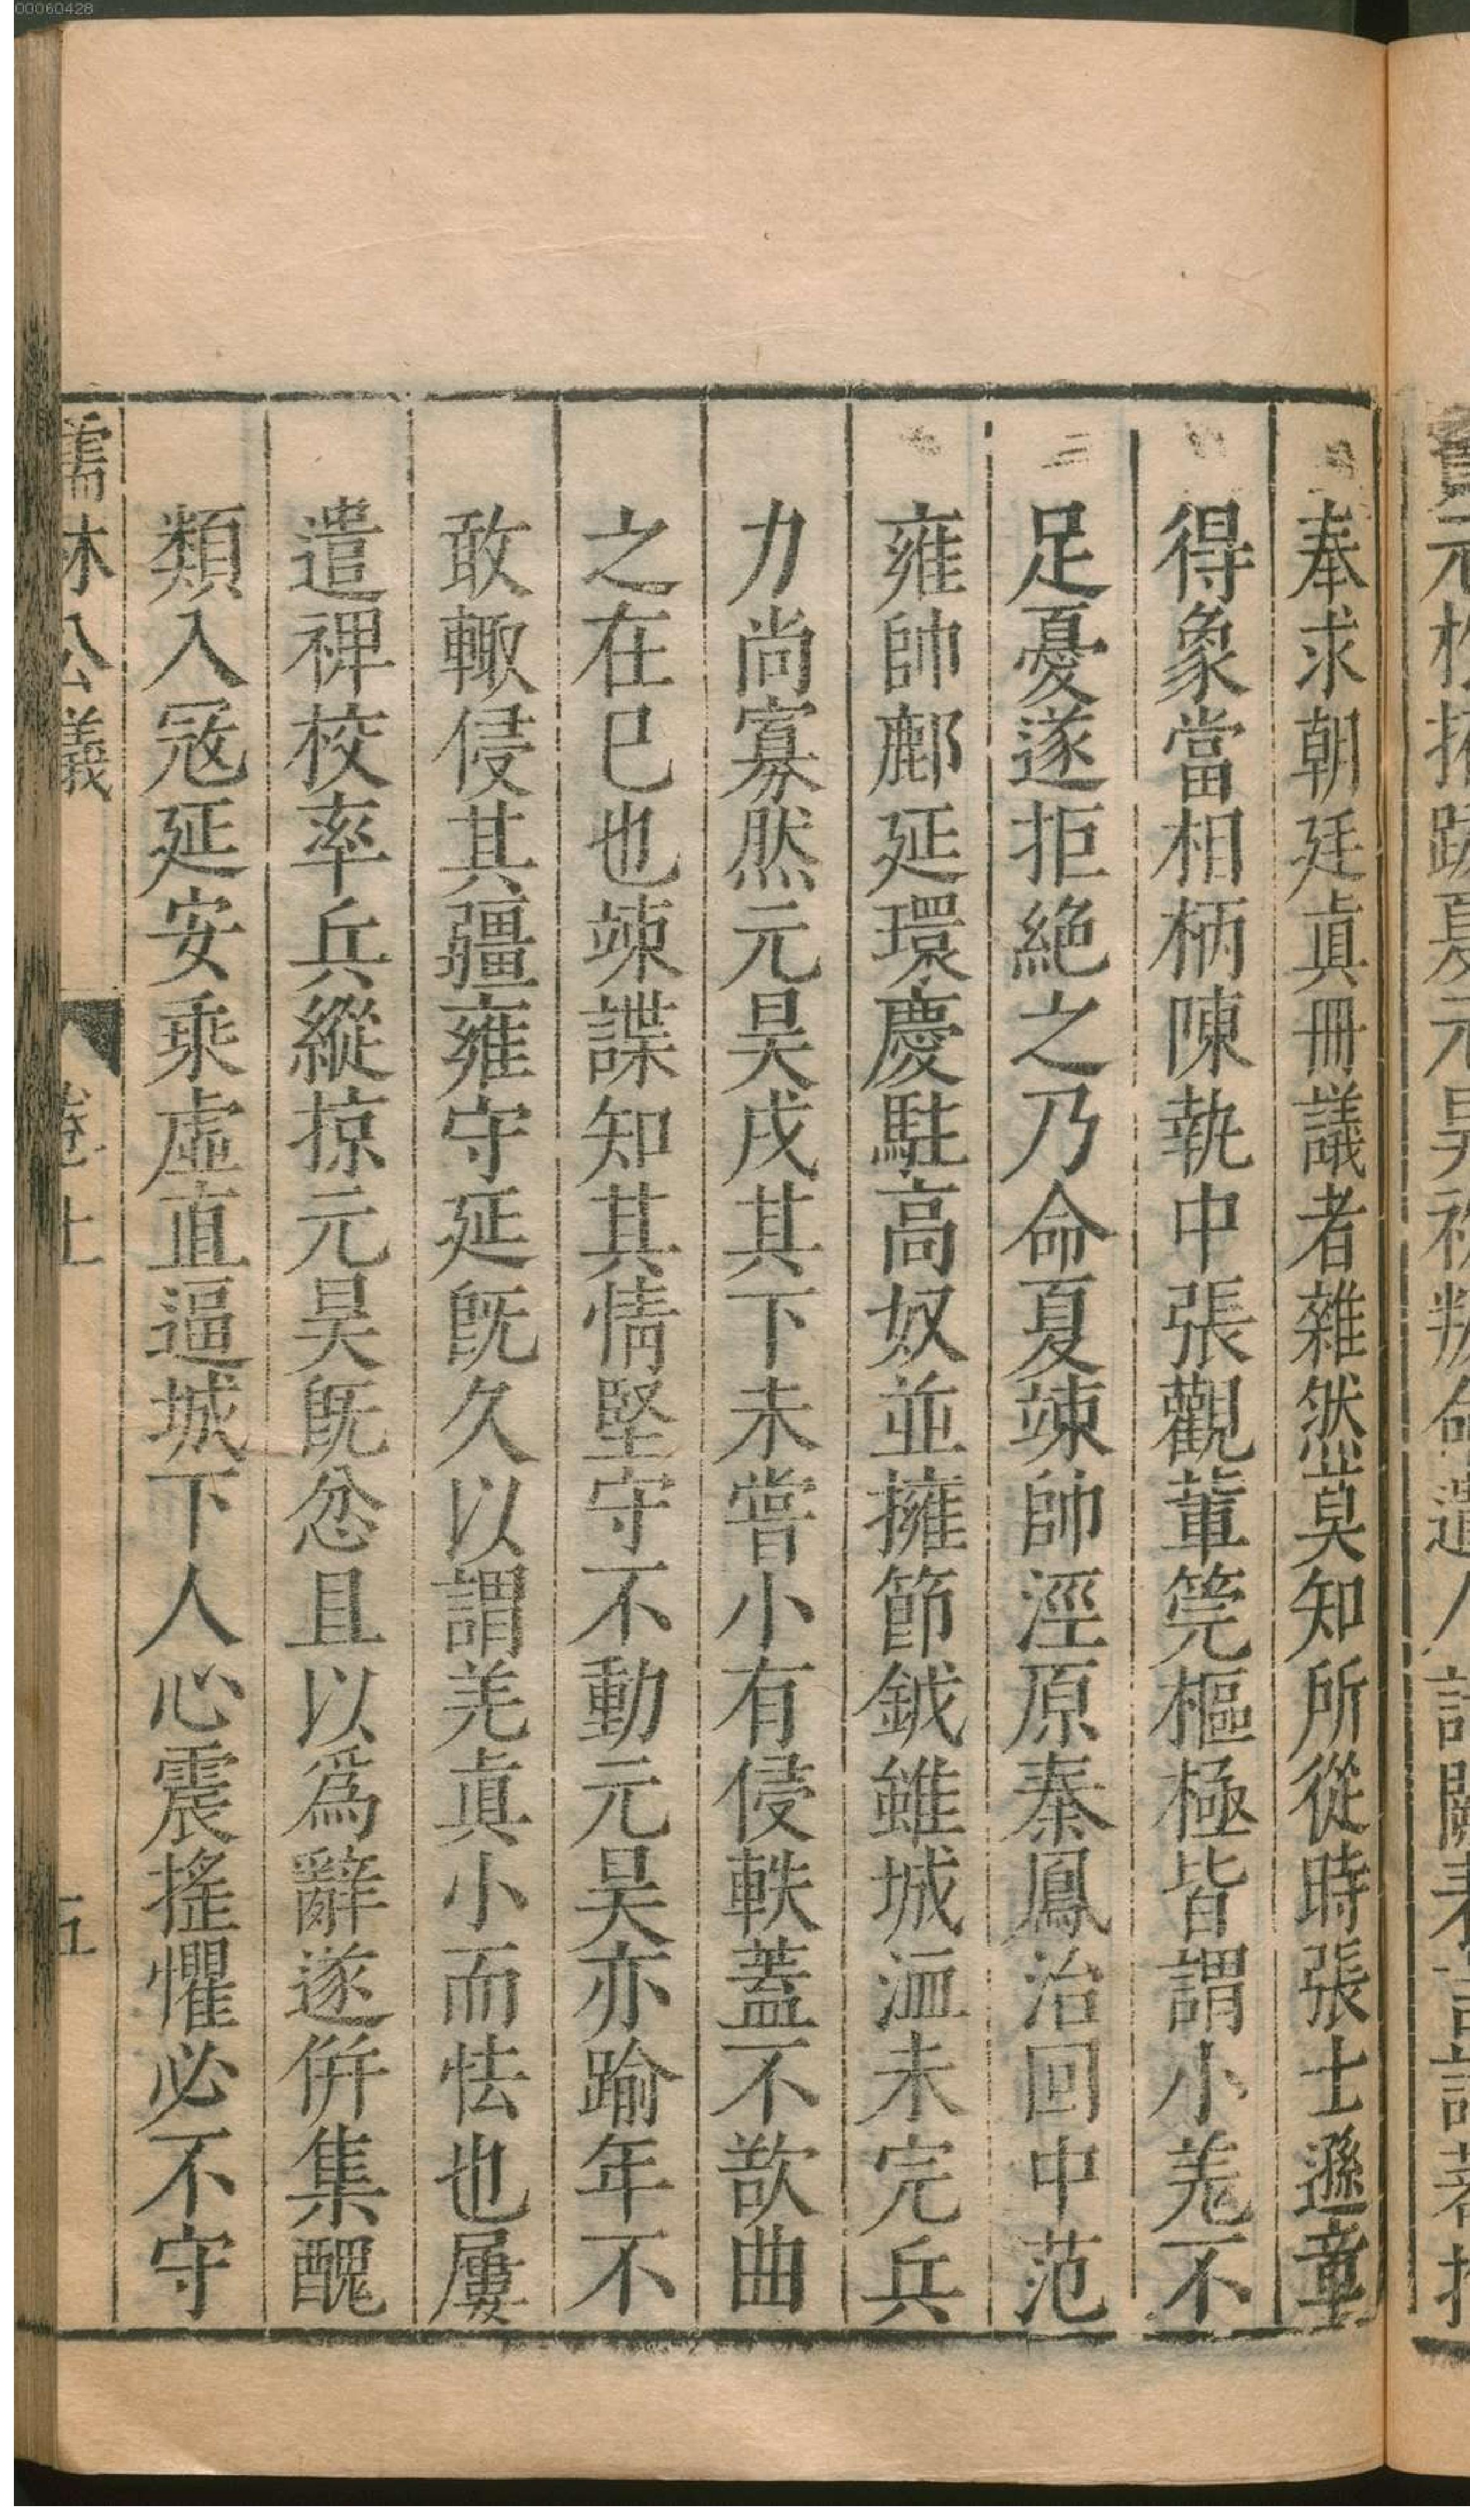 00060428
元
夏元昊
奉求朝廷真冊議者雜然莫知所從時張士遜章
得象當相柄陳執中張觀董筦樞極皆謂小羌不
足憂遂拒絶之乃命夏竦帥涇原秦鳳治回中范
雍帥鄜延環慶駐高奴並擁節鉞雖城洫未完兵
力尚寡然元昊戌其下未嘗小有侵軼蓋不欲曲
之在巳也竦諜知其情堅守不動元昊亦踰年不
敢輙侵其疆雍守延旣久以謂羌真小而怯也屢
遣裨校率兵縱掠元昊旣忿且以爲辭遂併集醜
類入冦延安乘虛直逼城下人心震搖懼必不守
儒林公議
卷上
五